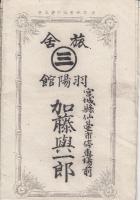 旅舍
三
羽陽館
宮城縣仙臺市停車場前
加藤與一郎